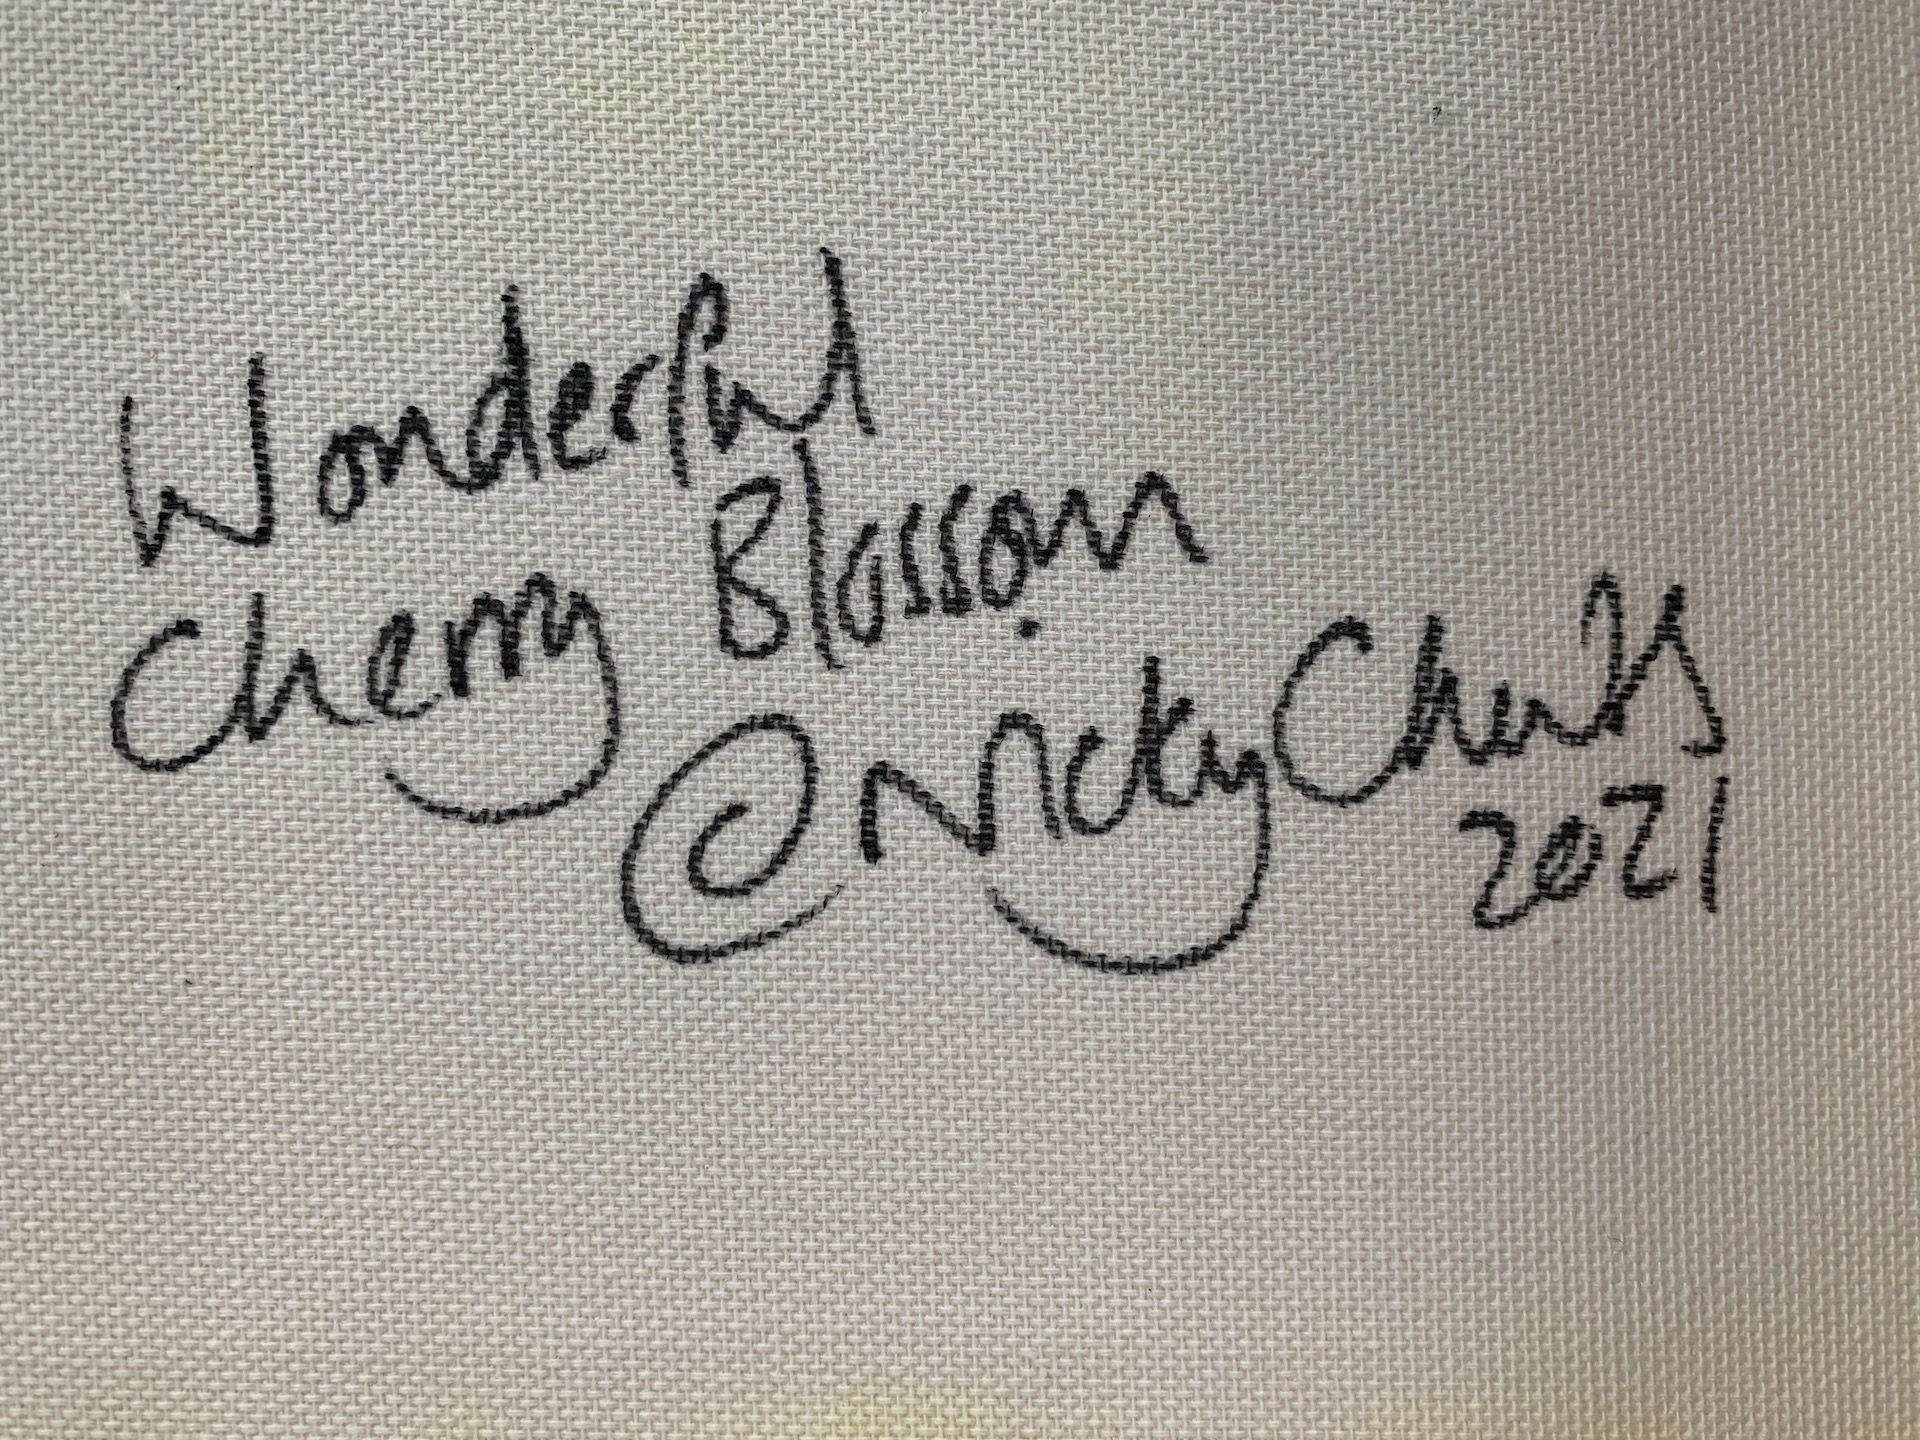 Wonderful
Cherry Blossom
© Nicky Chubb
2021